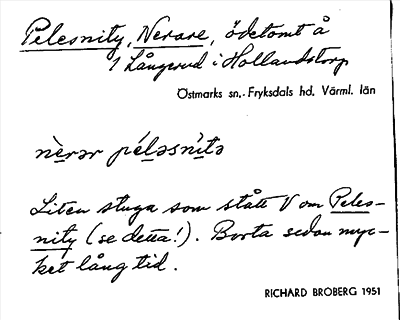 Pelesnity, Nerare, ödetomt å
1 Långerud i Hollandstorp
Östmarks sn,. Fryksdals hd. Värml. län
nèrər péləsnìtə
Liten stuga som stått V om Peles-
nity (se detta!). Borta sedan myc-
ket lång tid.
RICHARD BROBERG 1951